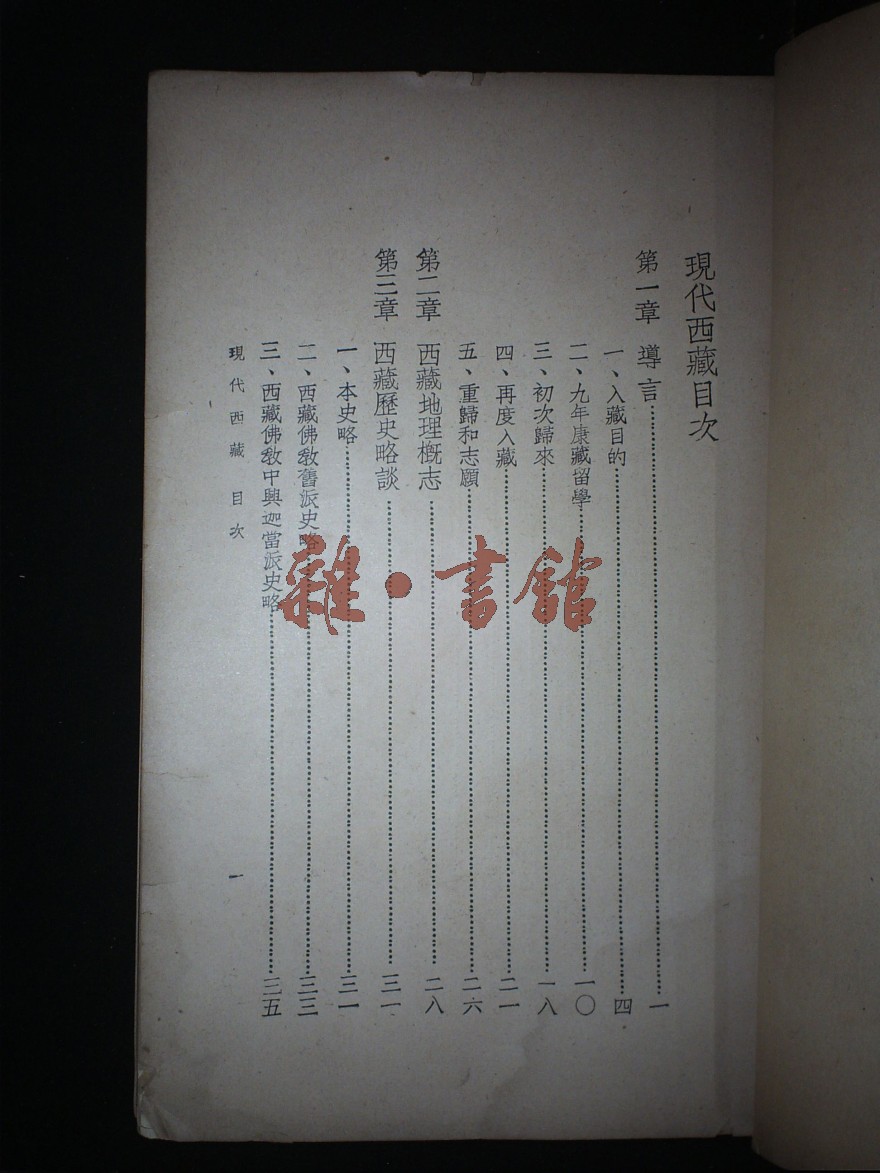 現代西藏目次
第一章 導言……一
一、入藏目的……四
二、九年康藏留學……一〇
三、初次歸來……一八
四、再度入藏……二一
五、重歸和志願……二六
第二章 西藏地理概志……二八
第三章 西藏歷史略談……三一
一、本史略……三一
二、西藏佛教舊派史略……三三
三、西藏佛教中興迦當派史略……三五
現代西藏 目次 一
雜·書館